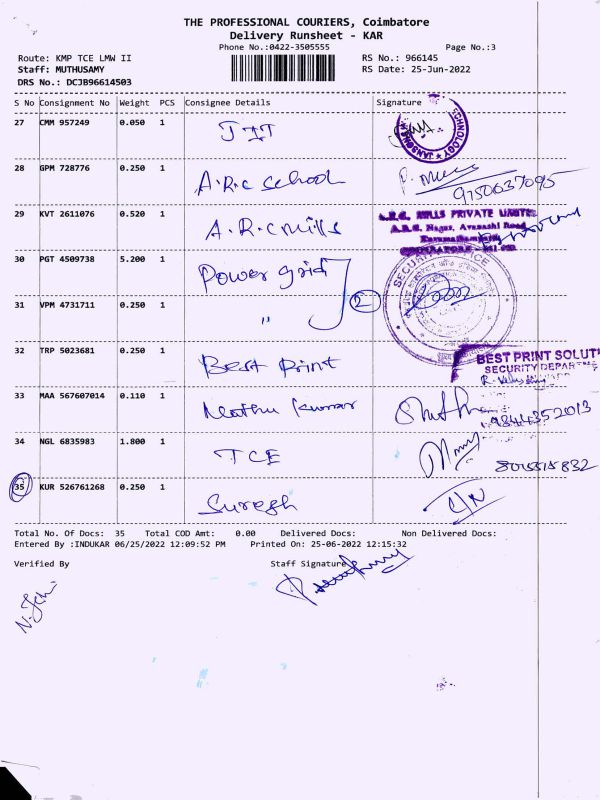 THE PROFESSIONAL COURIERS, Coimbatore
Delivery Runsheet - KAR
Phone No.:0422-3505555
Page No.:3
Route: KMP TCE LMW II
RS No.: 966145
Staff: MUTHUSAMY
RS Date: 25-Jun-2022
DRS No.: DCJB96614503
S No Consignment No Weight PCS Consignee Details Signature
27 CMM 957249 0.050 1 JIT
28 GPM 728776 0.250 1 A.R.C School 9750637095
29 KVT 2611076 0.520 1 A.R.C Mills
MILLS PRIVATE LIMITED
Nagar, Avanashi Road
30 PGT 4509738 5.200 1 Power grid
SECURITY OFFICE
31 VPM 4731711 0.250 1 " 2
32 TRP 5023681 0.250 1 Best Print
BEST PRINT SOLUT
SECURITY DEPAR
33 MAA 567607014 0.110 1 Muthu Kumar 9844352013
34 NGL 6835983 1.800 1 TCE
35 KUR 526761268 0.250 1 Suresh
Total No. Of Docs: 35 Total COD Amt: 0.00 Delivered Docs: Non Delivered Docs:
Entered By :INDUKAR 06/25/2022 12:09:52 PM Printed On: 25-06-2022 12:15:32
Verified By Staff Signature